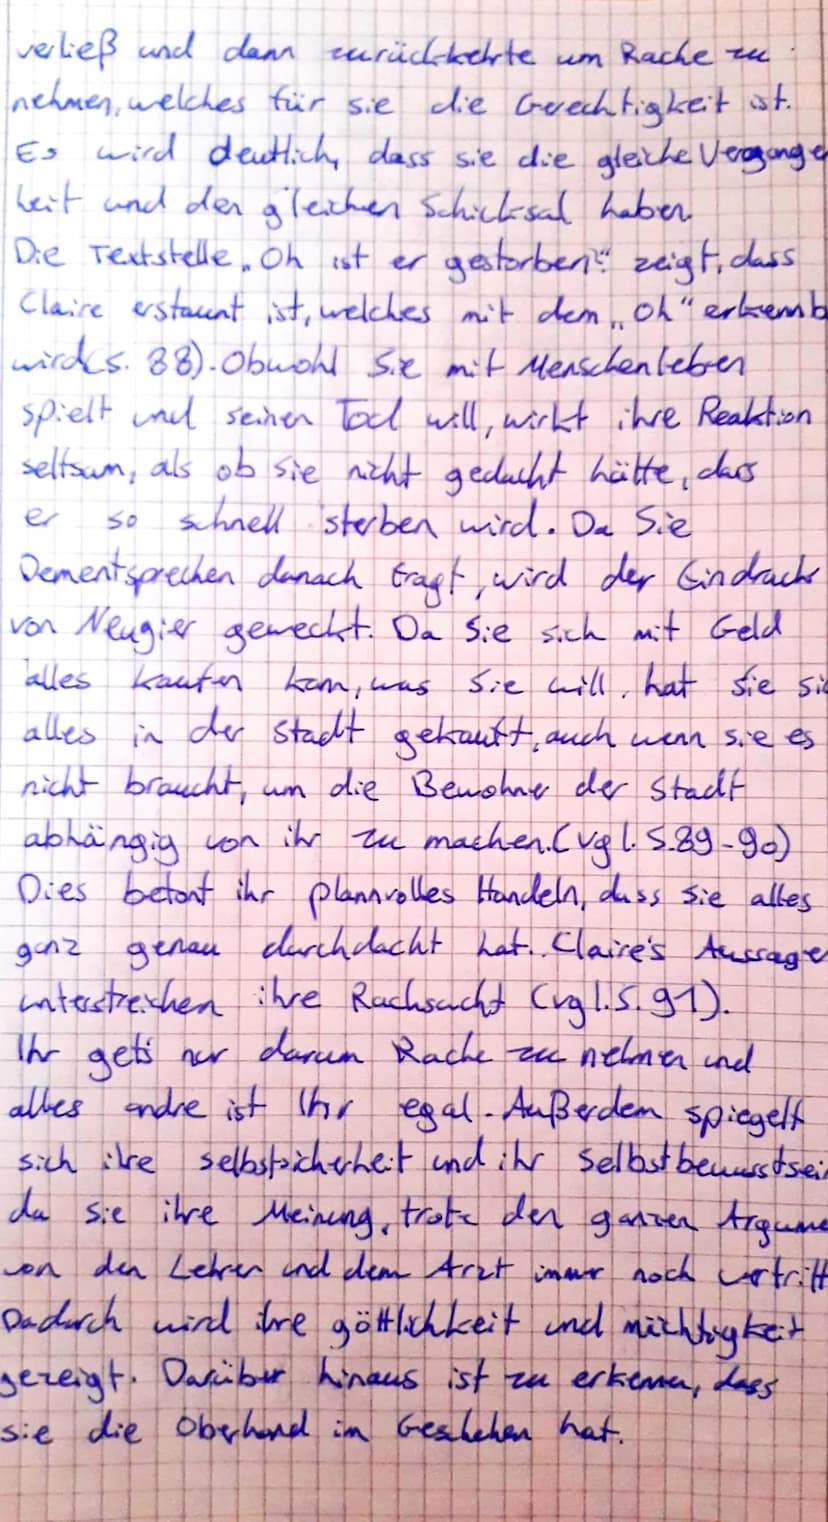 verließ und dann zurückkehrte um Rache zu
nehmen, welches für sie die Gerechtigkeit ist.
Es wird deutlich, dass sie die gleiche Vergangen
heit und den gleichen Schicksal haben.
Die Textstelle „Oh ist er gestorben?“ zeigt, dass
Claire erstaunt ist, welches mit dem „Oh“ erkennb
wird (s. 88). Obwohl Sie mit Menschenleben
spielt und seinen Tod will, wirkt ihre Reaktion
seltsam, als ob sie nicht gedacht hätte, dass
er so schnell sterben wird. Da Sie
Dementsprechen danach fragt, wird der Eindruck
von Neugier geweckt. Da Sie sich mit Geld
alles kaufen kann, was Sie will, hat sie sic
alles in der Stadt gekauft, auch wenn sie es
nicht braucht, um die Bewohner der Stadt
abhängig von ihr zu machen. (vgl. S.89-90)
Dies betont ihr plannvolles Handeln, dass sie alles
ganz genau durchdacht hat. Claire's Aussage
unterstreichen ihre Rachsucht (vgl. S. 91).
Ihr gets nur darum Rache zu nehmen und
alles andre ist Ihr egal. Außerdem spiegelt
sich ihre selbstsicherheit und ihr Selbstbewusstsei
da sie ihre Meinung, trotz den ganzen Argume
von den Lehrer und dem Arzt immer noch vertritt
Dadurch wird ihre göttlichkeit und mächtigkeit
gezeigt. Darüber hinaus ist zu erkennen, dass
sie die Oberhand im Geschehen hat.